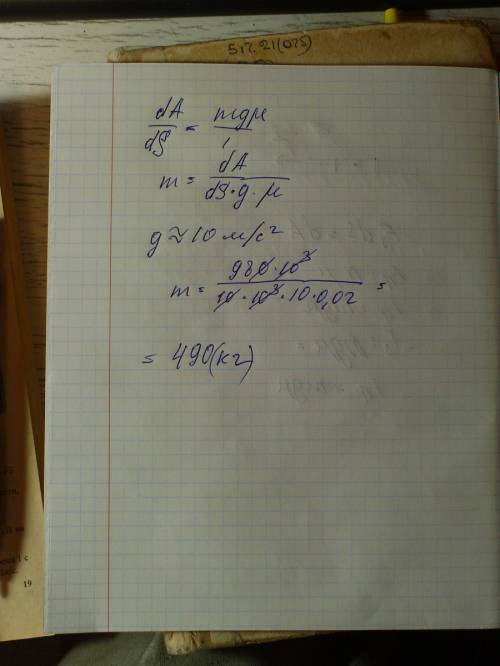 517.21(075)
dA/dS = mgμ/1
m = dA/(dS·g·μ)
g ≈ 10 м/с²
m = 980·10³/(10·10³·10·0,02) =
= 490(кг)
19